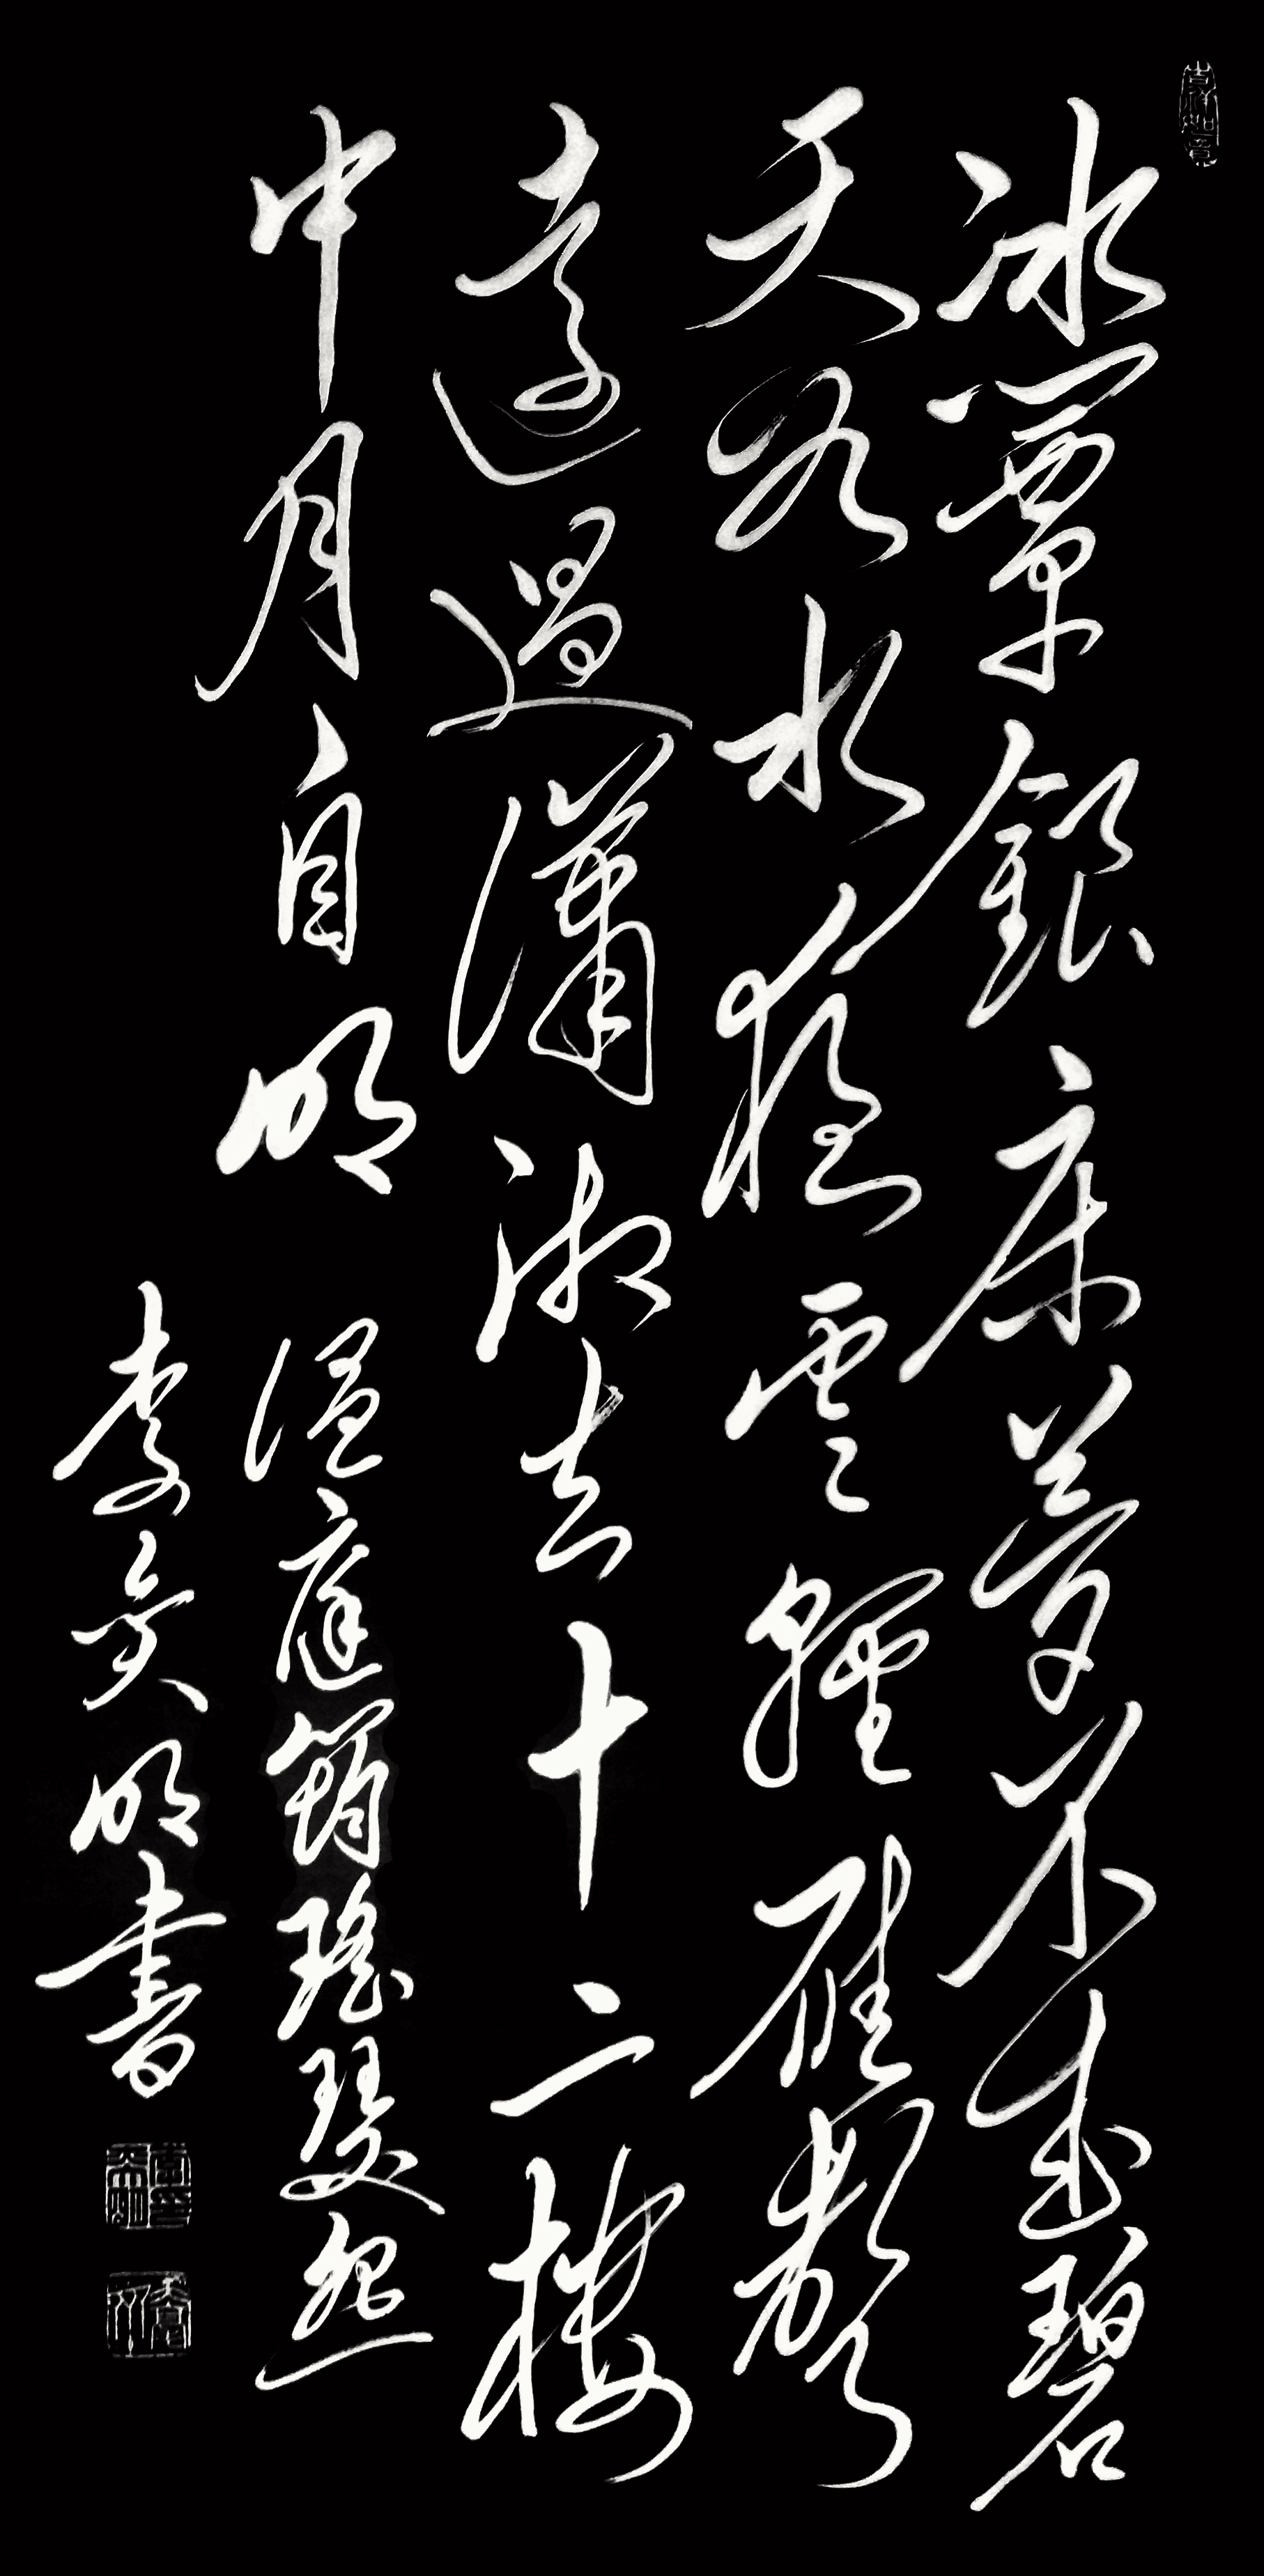 冰簟銀床夢不成碧
天如水夜雲輕雁聲
遠過瀟湘去十二樓
中月自明
溫庭筠瑤瑟怨
李明書